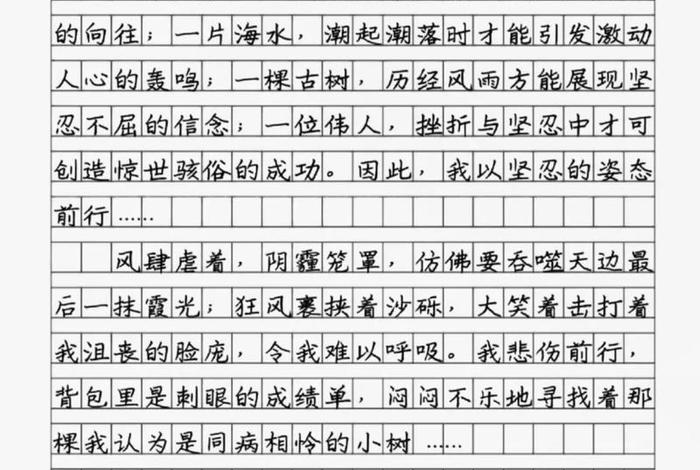 的向往；一片海水，潮起潮落时才能引发激动
人心的轰鸣；一棵古树，历经风雨方能展现坚
忍不屈的信念；一位伟人，挫折与坚忍中才可
创造惊世骇俗的成功。因此，我以坚忍的姿态
前行……
风肆虐着，阴霾笼罩，仿佛要吞噬天边最
后一抹霞光；狂风裹挟着沙砾，大笑着击打着
我沮丧的脸庞，令我难以呼吸。我悲伤前行，
背包里是刺眼的成绩单，闷闷不乐地寻找着那
棵我认为是同病相怜的小树……